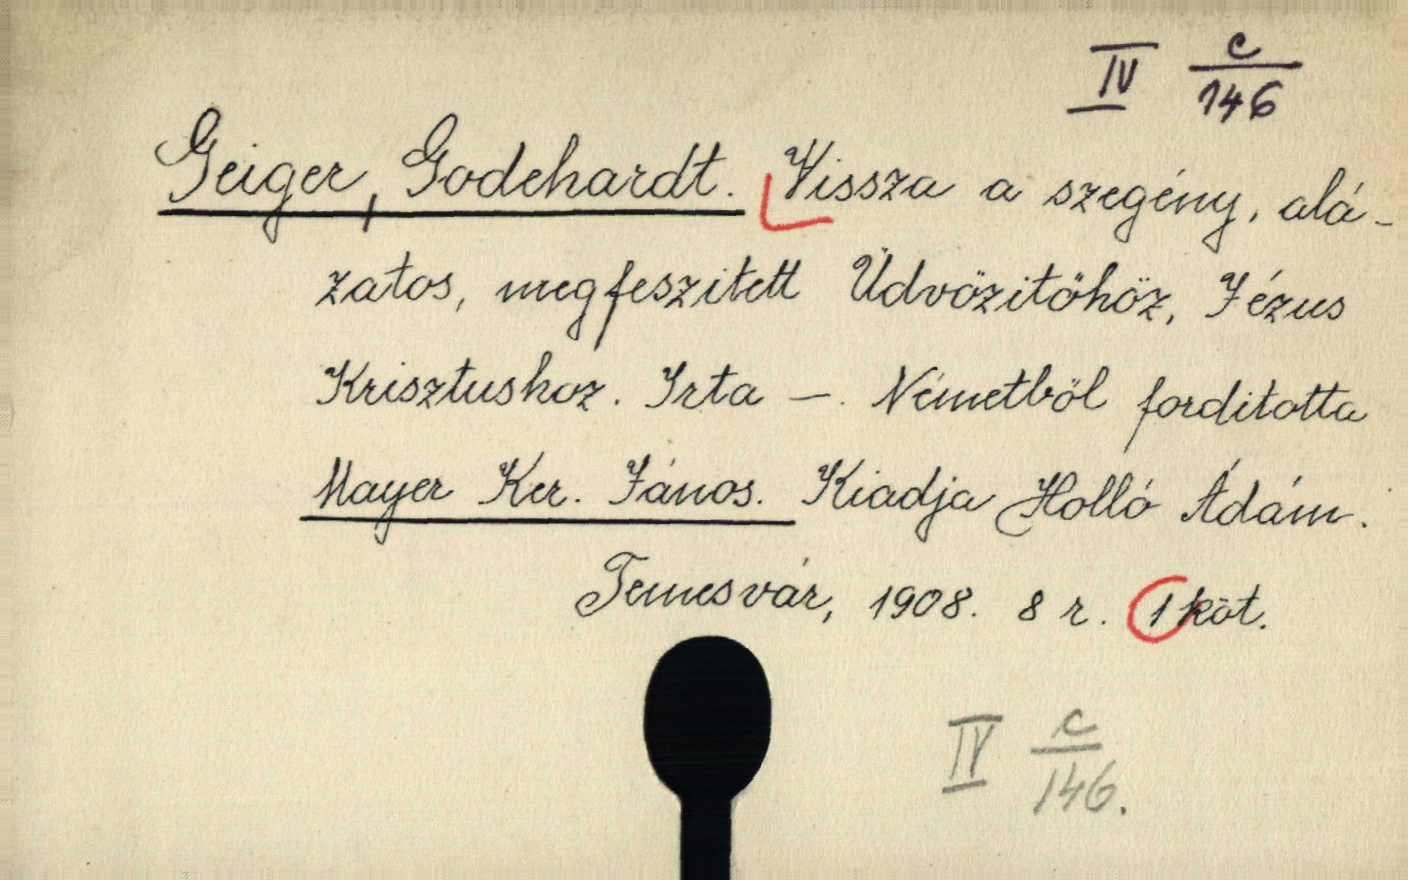 IV c/146
Geiger, Godehardt. Vissza a szegény, alá-
zatos, megfeszitett Üdvözitöhöz, Jézus
Krisztushoz. Irta —. Németböl forditotta
Mayer Ker. János. Kiadja Holló Ádám.
Temesvár, 1908. 8 r. 1 köt.
IV c/146.